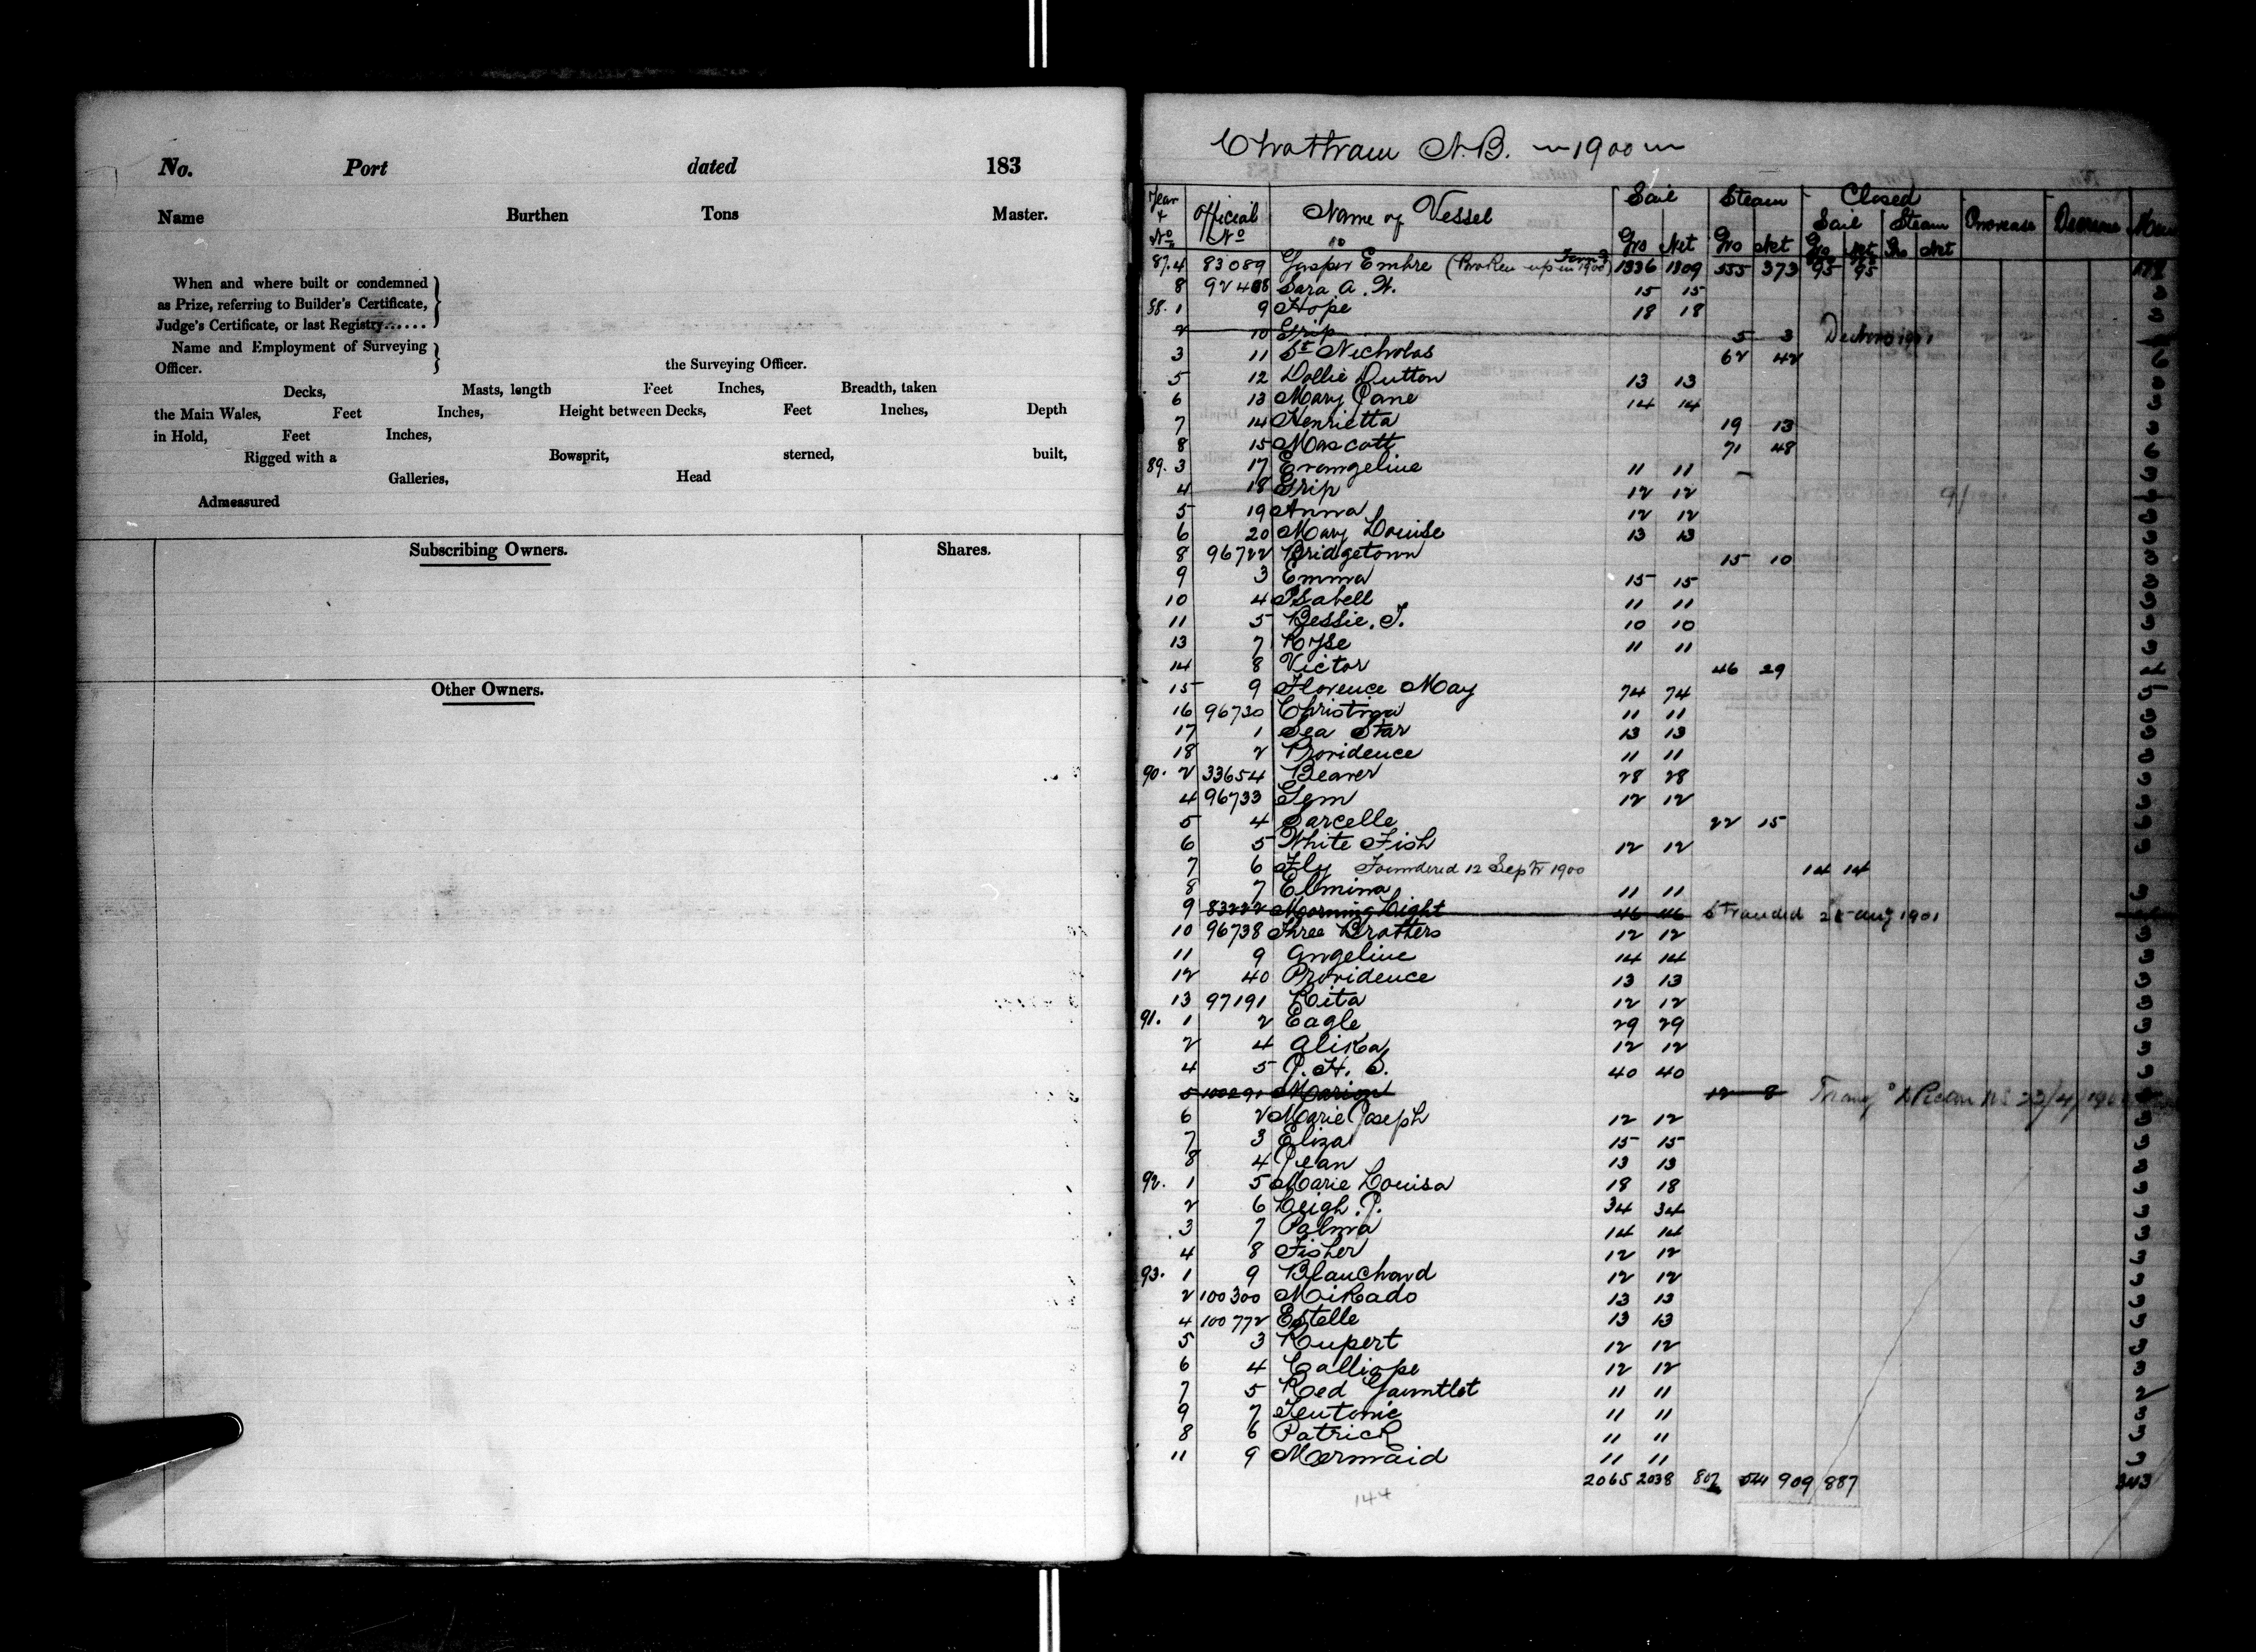 No. Port dated 183
Name Burthen Tons Master.
When and where built or condemned
as Prize, referring to Builder's Certificate,
Judge's Certificate, or last Registry......
Name and Employment of Surveying
Officer. the Surveying Officer.
Decks, Masts, length Feet Inches, Breadth, taken
the Main Wales, Feet Inches, Height between Decks, Feet Inches, Depth
in Hold, Feet Inches,
Rigged with a Bowsprit, sterned, built,
Galleries, Head
Admeasured
Subscribing Owners. Shares.
Other Owners.
Chatham N.B. 1900
Year & No Official No Name of Vessel Sail Gro Net Steam Gro Net Closed Sail Gro Net Steam Gro Net Increase Decrease
87. 4 83089 Jasper Embre (Broken up in 1900) 1336 1309 555 373 95 95
8 92408 Sara A. W. 15 15 3
88. 1 9 Hope 18 18 3
2 10 Grip 5 3
3 11 St Nicholas 62 42 6
5 12 Dollie Dutton 13 13 3
6 13 Mary Jane 14 14 3
7 14 Henrietta 19 13 3
8 15 Mascott 71 48 6
89. 3 17 Evangeline 11 11 3
4 18 Grip 12 12
5 19 Anna 12 12 3
6 20 Mary Louise 13 13 3
8 96722 Bridgetown 15 10 3
9 3 Emma 15 15 3
10 4 Isabell 11 11 3
11 5 Bessie. T. 10 10 3
13 7 Ryse 11 11 3
14 8 Victor 46 29
15 9 Florence May 74 74
16 96730 Christina 11 11 3
17 1 Sea Star 13 13 3
18 2 Providence 11 11 3
90. 2 33654 Beaver 28 28 3
4 96733 Gem 12 12 3
5 4 Sarcelle 22 15 3
6 5 White Fish 12 12 3
7 6 Fly Foundered 12 Septr 1900 14 14
8 7 Elmina 11 11 3
9 83222 Morning Light 46 46 Stranded Aug 1901
10 96738 Three Brothers 12 12 3
11 9 Angeline 14 14 3
12 40 Providence 13 13 3
13 97191 Rita 12 12 3
91. 1 2 Eagle 29 29 3
2 4 Alika 12 12 3
4 5 J. H. S. 40 40 3
5 100291 Marion 12 8
6 2 Marie Joseph 12 12 3
7 3 Eliza 15 15 3
8 4 Jean 13 13 3
92. 1 5 Marie Louisa 18 18 3
2 6 Leigh. J. 34 34 3
3 7 Palma 14 14 3
4 8 Fisher 12 12 3
93. 1 9 Blanchard 12 12 3
2 100300 Mikado 13 13 3
4 100772 Estelle 13 13 3
5 3 Rupert 12 12 3
6 4 Calliope 12 12 3
7 5 Red Gauntlet 11 11 2
9 7 Teutonic 11 11 3
8 6 Patrick 11 11 3
11 9 Mermaid 11 11 3
2065 2038 807 544 909 887 343
144